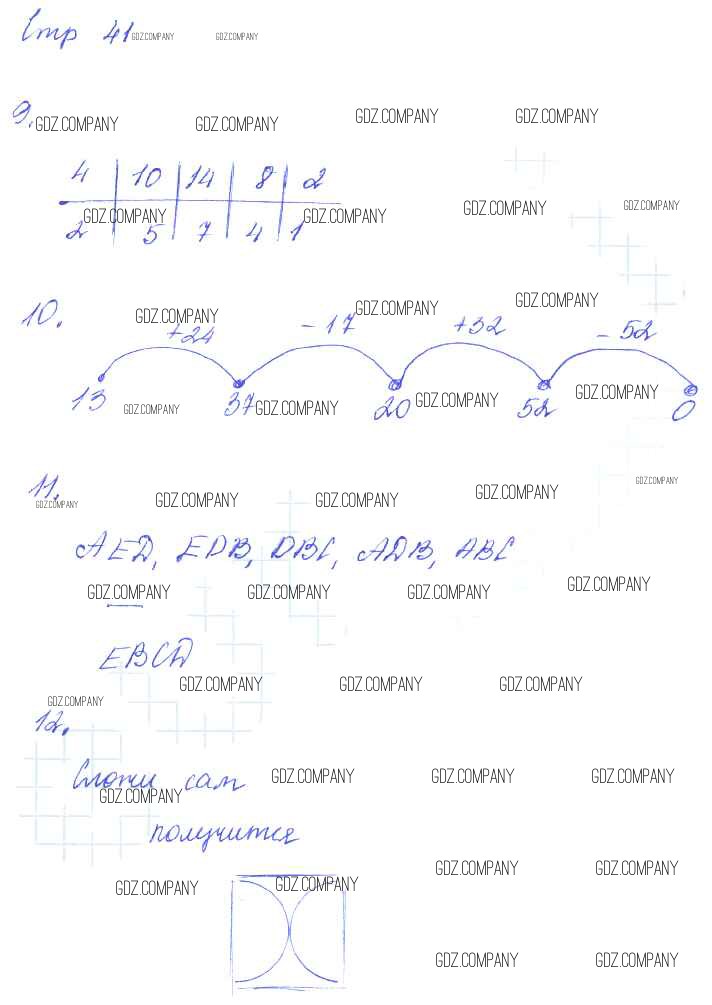 Стр 41 GDZ.COMPANY GDZ.COMPANY
9. GDZ.COMPANY GDZ.COMPANY GDZ.COMPANY GDZ.COMPANY
4 10 14 8 2
GDZ.COMPANY GDZ.COMPANY GDZ.COMPANY GDZ.COMPANY
2 5 7 4 1
10. GDZ.COMPANY GDZ.COMPANY GDZ.COMPANY
+24 -17 +32 -52
13 37 20 52 0
GDZ.COMPANY GDZ.COMPANY GDZ.COMPANY GDZ.COMPANY
11.
GDZ.COMPANY GDZ.COMPANY GDZ.COMPANY GDZ.COMPANY GDZ.COMPANY
AED, EDB, DBC, ADB, ABC
GDZ.COMPANY GDZ.COMPANY GDZ.COMPANY GDZ.COMPANY
EBCD
GDZ.COMPANY GDZ.COMPANY GDZ.COMPANY
GDZ.COMPANY
12.
Сложи сам GDZ.COMPANY GDZ.COMPANY GDZ.COMPANY
GDZ.COMPANY
получится
GDZ.COMPANY GDZ.COMPANY
GDZ.COMPANY GDZ.COMPANY
GDZ.COMPANY GDZ.COMPANY